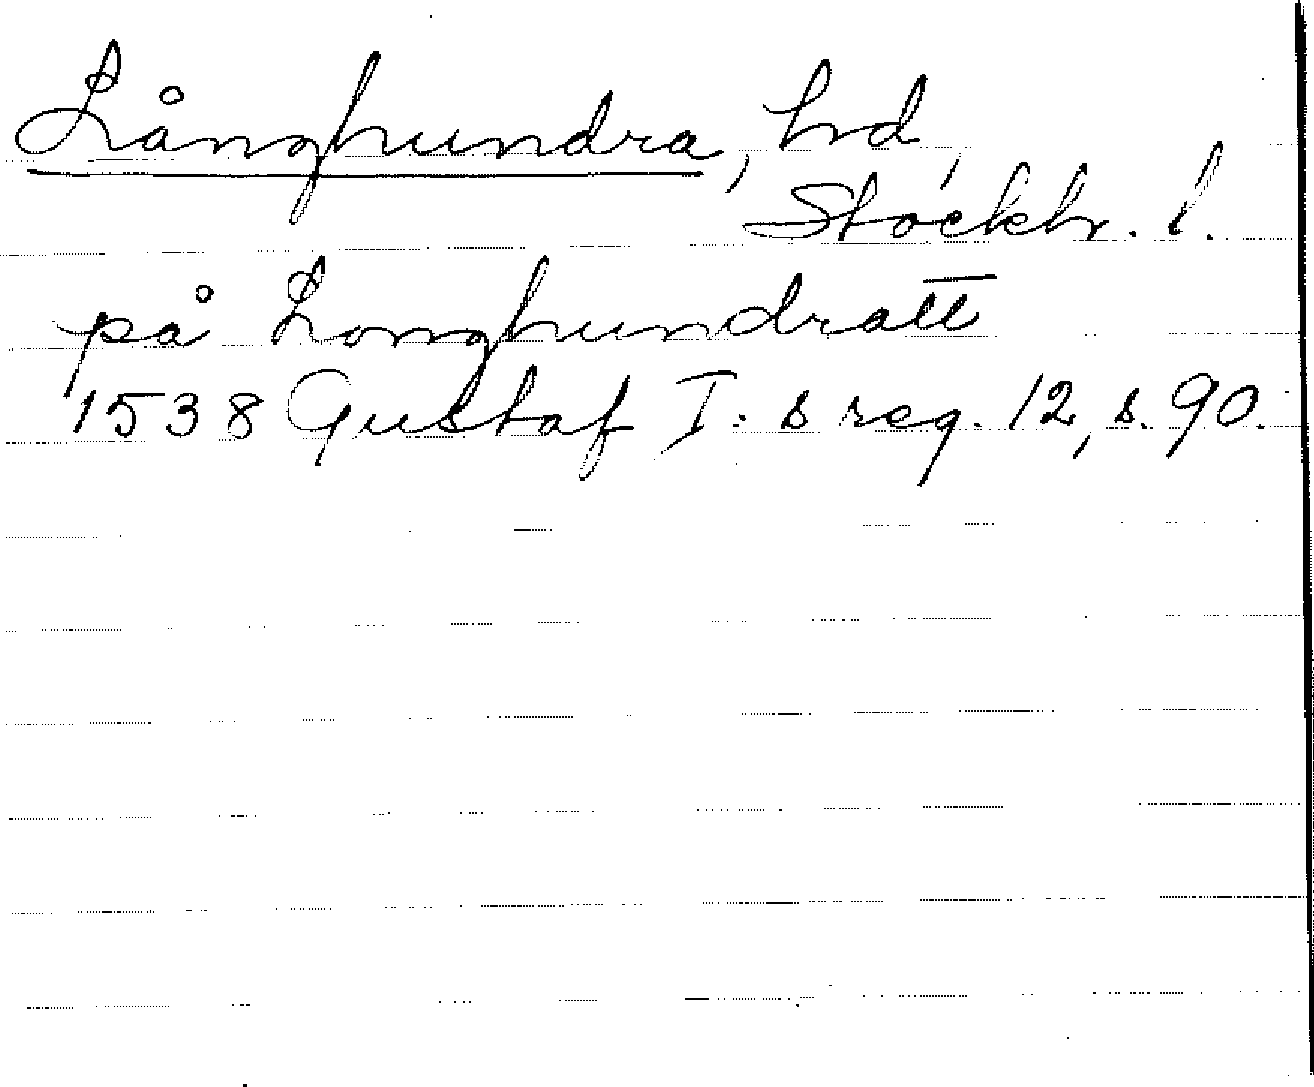 Långhundra, hd,
Stockh. l.
på Longhundratt
1538 Gustaf I:s reg. 12, s. 90.